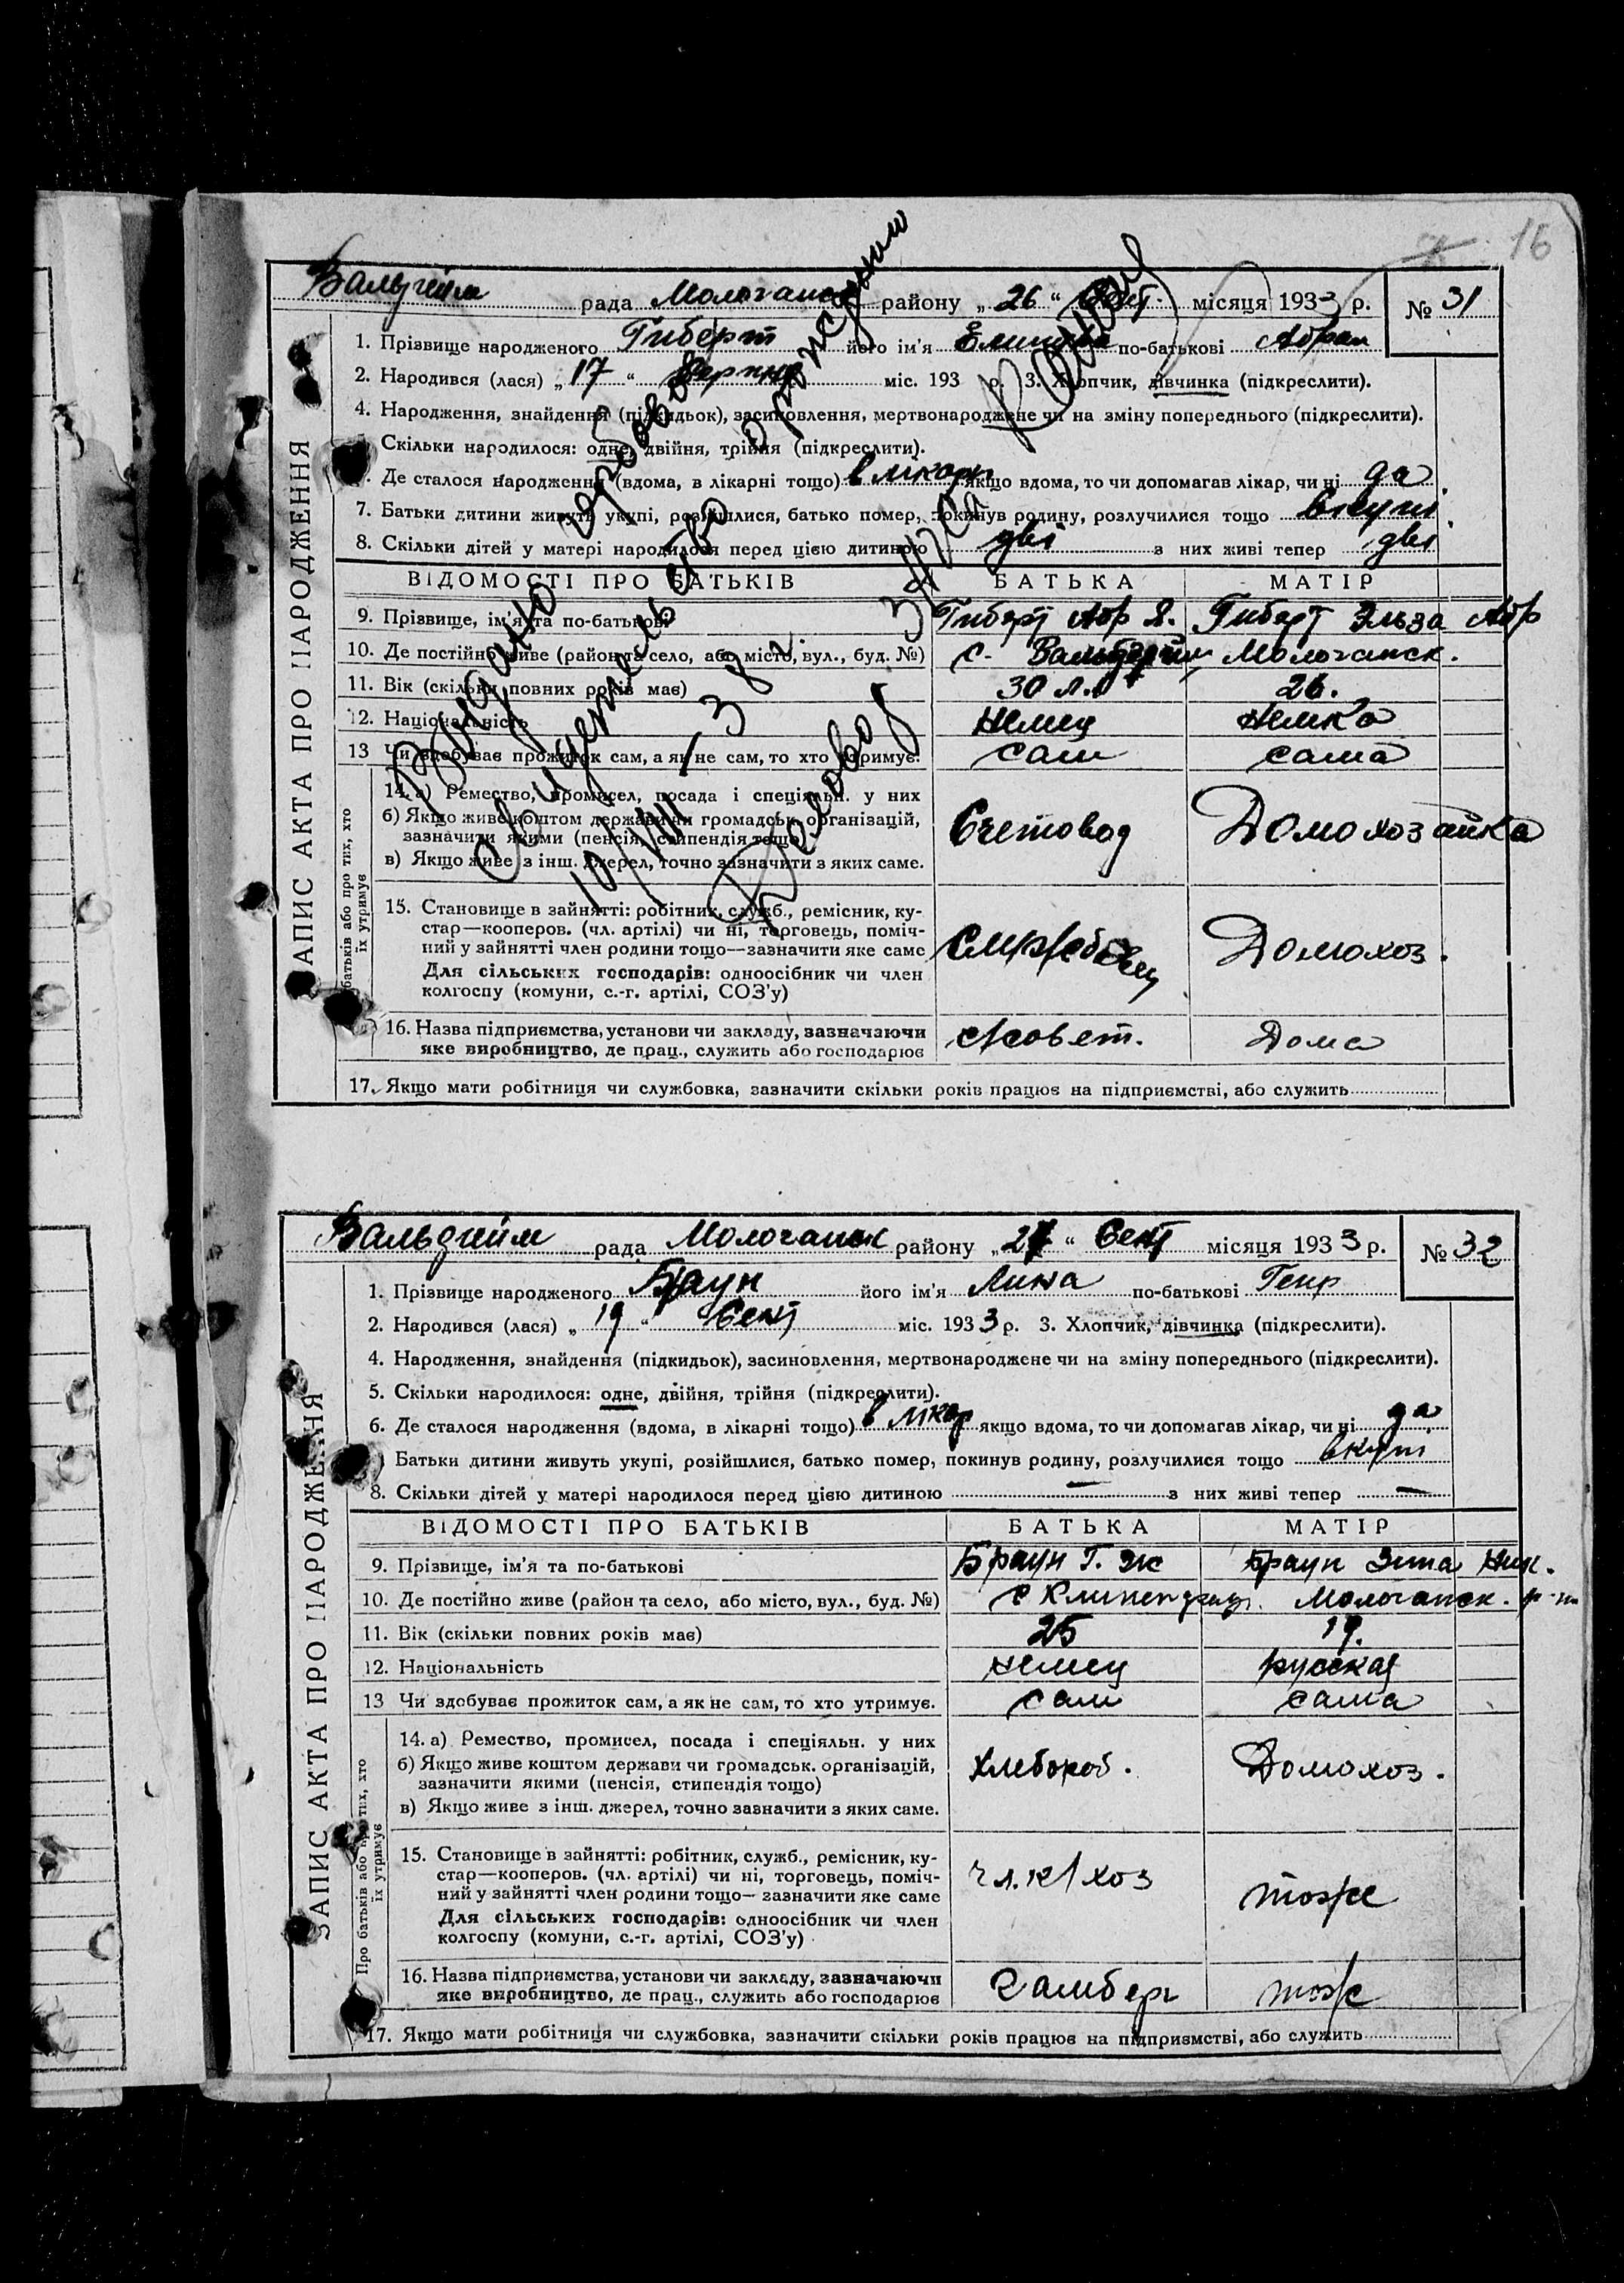 16
Вальдгейм рада Молочанск району „ 26 “ Сент місяця 1933 р. № 31
1. Прізвище народженого Гиберт його ім'я по-батькові Абрам
2. Народився (лася) „ 17 “ Серпня міс. 193 р. 3. Хлопчик, дівчинка (підкреслити).
4. Народження, знайдення (підкидьок), засиновлення, мертвонароджене чи на зміну попереднього (підкреслити).
Скільки народилося: одне, двійня, трійня (підкреслити).
Де сталося народження (вдома, в лікарні тощо) в лікарн якщо вдома, то чи допомагав лікар, чи ні да
7. Батьки дитини живуть укупі, розійшлися, батько помер, покинув родину, розлучилися тощо вкупі
8. Скільки дітей у матері народилося перед цією дитиною дві з них живі тепер дві
ВІДОМОСТІ ПРО БАТЬКІВ БАТЬКА МАТІР
9. Прізвище, ім'я та по-батькові Гиберт Абр Я. Гиберт Эльза Абр
10. Де постійно живе (район та село, або місто, вул., буд. №) с. Вальдгейм Молочанск.
11. Вік (скільки повних років має) 30 л. 26.
12. Національність Немец Немка
13 Чи здобуває прожиток сам, а як не сам, то хто утримує. сам сама
14. а) Ремество, промисел, посада і спеціяльн. у них
б) Якщо живе коштом держави чи громадськ. організацій,
зазначити якими (пенсія, стипендія тощо) Счетовод Домохозайка
в) Якщо живе з інш. джерел, точно зазначити з яких саме.
15. Становище в зайнятті: робітник, служб., ремісник, ку-
стар—кооперов. (чл. артілі) чи ні, торговець, поміч-
ний у зайнятті член родини тощо—зазначити яке саме Домохоз.
Для сільських господарів: одноосібник чи член
колгоспу (комуни, с.-г. артілі, СОЗ'у)
16. Назва підприємства, установи чи закладу, зазначаючи
яке виробництво, де прац., служить або господарює Дома
17. Якщо мати робітниця чи службовка, зазначити скільки років працює на підприємстві, або служить
АПИС АКТА ПРО НАРОДЖЕННЯ
батьків або про тих, хто
їх утримує
Видано
Свидетельство о рождении
Вальдгейм рада Молочанск району „ 27 “ Сент місяця 1933 р. № 32
1. Прізвище народженого Браун його ім'я Лина по-батькові Генр
2. Народився (лася) „ 19 “ Сент міс. 1933 р. 3. Хлопчик, дівчинка (підкреслити).
4. Народження, знайдення (підкидьок), засиновлення, мертвонароджене чи на зміну попереднього (підкреслити).
5. Скільки народилося: одне, двійня, трійня (підкреслити).
6. Де сталося народження (вдома, в лікарні тощо) в лікар якщо вдома, то чи допомагав лікар, чи ні да
Батьки дитини живуть укупі, розійшлися, батько помер, покинув родину, розлучилися тощо вкупі
8. Скільки дітей у матері народилося перед цією дитиною — з них живі тепер —
ВІДОМОСТІ ПРО БАТЬКІВ БАТЬКА МАТІР
9. Прізвище, ім'я та по-батькові Браун Г. Браун Ник.
10. Де постійно живе (район та село, або місто, вул., буд. №) с Молочанск. р-на
11. Вік (скільки повних років має) 25 19.
12. Національність немец русская
13 Чи здобуває прожиток сам, а як не сам, то хто утримує. сам сама
14. а) Ремество, промисел, посада і спеціяльн. у них
б) Якщо живе коштом держави чи громадськ. організацій,
зазначити якими (пенсія, стипендія тощо) Хлебороб. Домохоз.
в) Якщо живе з інш. джерел, точно зазначити з яких саме.
15. Становище в зайнятті: робітник, служб., ремісник, ку-
стар—кооперов. (чл. артілі) чи ні, торговець, поміч-
ний у зайнятті член родини тощо—зазначити яке саме чл. к/хоз тоже
Для сільських господарів: одноосібник чи член
колгоспу (комуни, с.-г. артілі, СОЗ'у)
16. Назва підприємства, установи чи закладу, зазначаючи
яке виробництво, де прац., служить або господарює тоже
17. Якщо мати робітниця чи службовка, зазначити скільки років працює на підприємстві, або служить
ЗАПИС АКТА ПРО НАРОДЖЕННЯ
Про батьків або про тих, хто
їх утримує